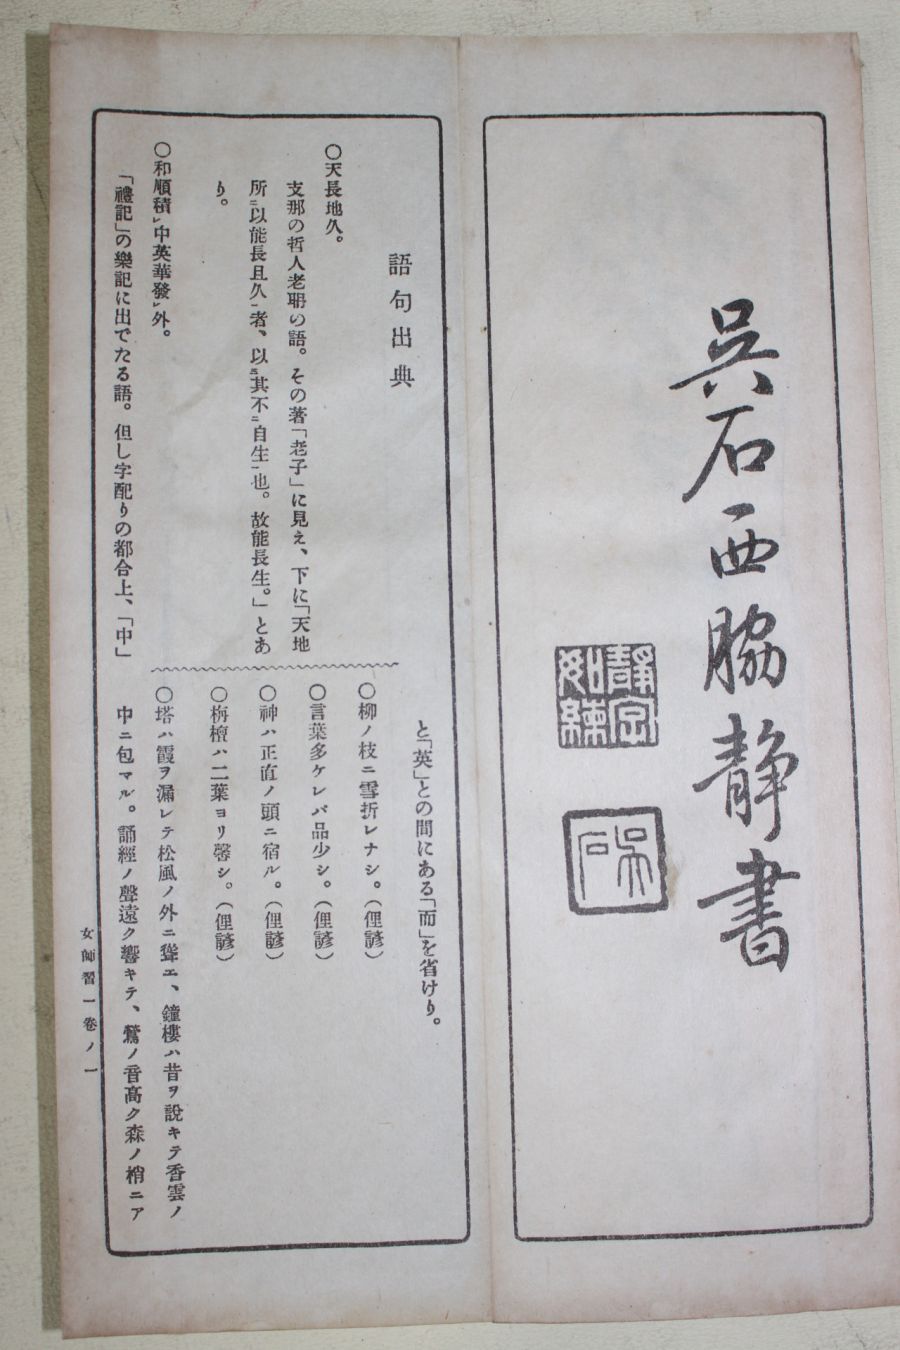 吳石西脇静書
靜字
如練
吳石
語句出典
○天長地久。
支那の哲人老聃の語。その著「老子」に見え、下に「天地
所ニ以能長且久一者、以ニ其不ニ自生一也。故能長生。」とあ
り。
○和順積レ中英華發レ外。
「禮記」の樂記に出でたる語。但し字配りの都合上、「中」
と「英」との間にある「而」を省けり。
○柳ノ枝ニ雪折レナシ。(俚諺)
○言葉多ケレバ品少シ。(俚諺)
○神ハ正直ノ頭ニ宿ル。(俚諺)
○栴檀ハ二葉ヨリ馨シ。(俚諺)
○塔ハ霞ヲ漏レテ松風ノ外ニ聳エ、鐘樓ハ昔ヲ說キテ香雲ノ
中ニ包マル。誦經ノ聲遠ク響キテ、鶯ノ音高ク森ノ梢ニア
女師習一卷ノ一